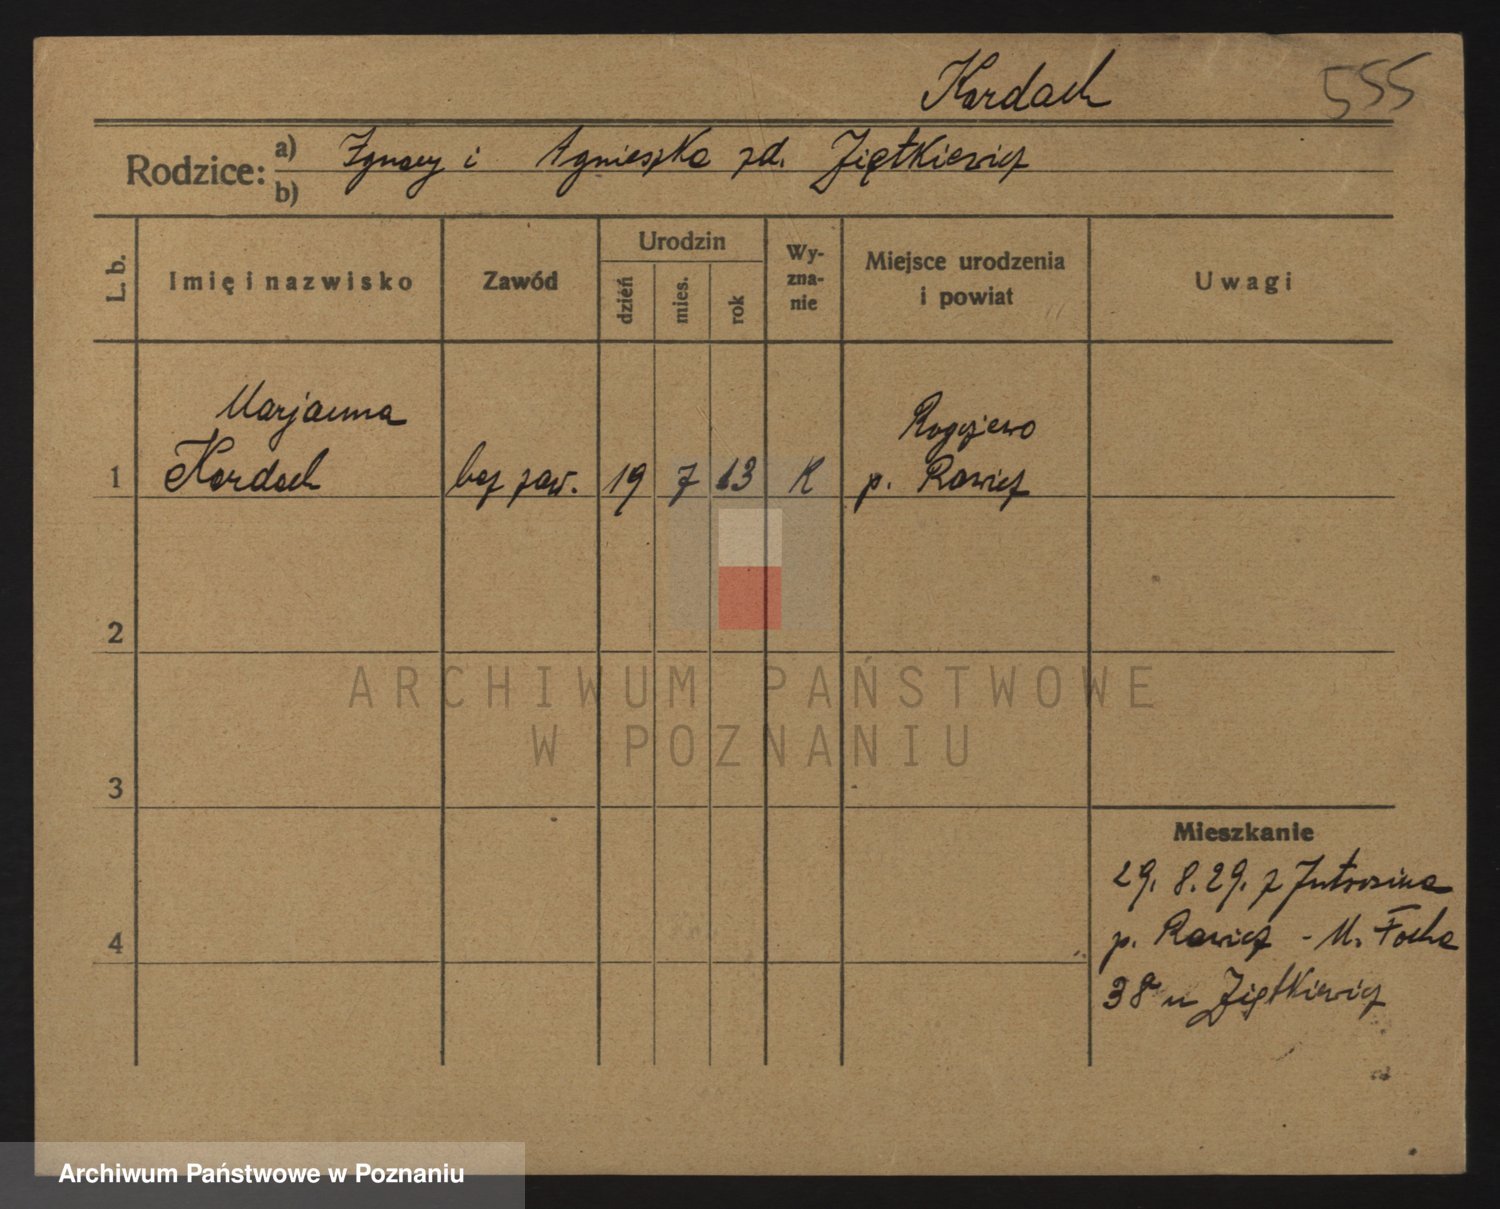 Kordach
555
Rodzice: a) Ignacy i Agnieszka zd. Ziętkiewicz
b)
L. b.
Imię i nazwisko
Zawód
Urodzin
dzień
mies.
rok
Wy-
zna-
nie
Miejsce urodzenia
i powiat
Uwagi
Marjanna Rogożewo
1 Kordach bez zaw. 19 7 13 K p. Rawicz
2
ARCHIWUM PAŃSTWOWE
W POZNANIU
3
Mieszkanie
29. 8. 29. z Jutrosina
p. Rawicz - M. Focha
4
38 u Ziętkiewicz
Archiwum Państwowe w Poznaniu